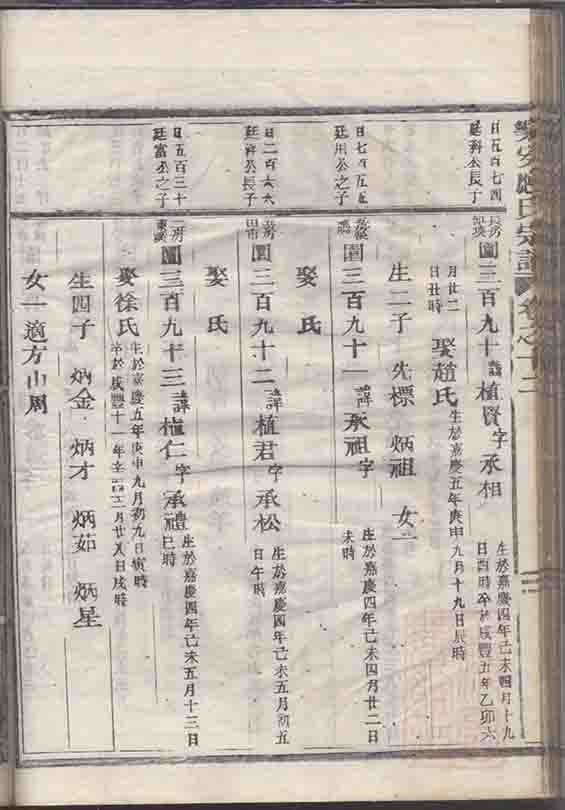 樂安應氏宗譜 卷之十二
日五百七四
廷科公長子
長房
圖三百九十 諱植賢字承相
生於嘉慶四年己未四月十九
日酉時卒於咸豐五年乙卯六
月廿二
日丑時
娶趙氏
生於嘉慶五年庚申九月十九日辰時
生二子 先標 炳祖 女一
日七百五五
廷用公之子
圖三百九十一 諱承祖字
生於嘉慶四年己未四月廿二日
未時
娶 氏
日二百六六
廷祥公長子
圖三百九十二 諱植君字承松
生於嘉慶四年己未五月初五
日午時
娶 氏
日五百三十
廷富公之子
圖三百九十三 諱植仁字承禮
生於嘉慶四年己未五月十三日
巳時
娶徐氏
生於嘉慶五年庚申九月初九日寅時
卒於咸豐十一年辛酉二月廿八日戌時
生四子 炳金 炳才 炳茹 炳星
女一適方山周